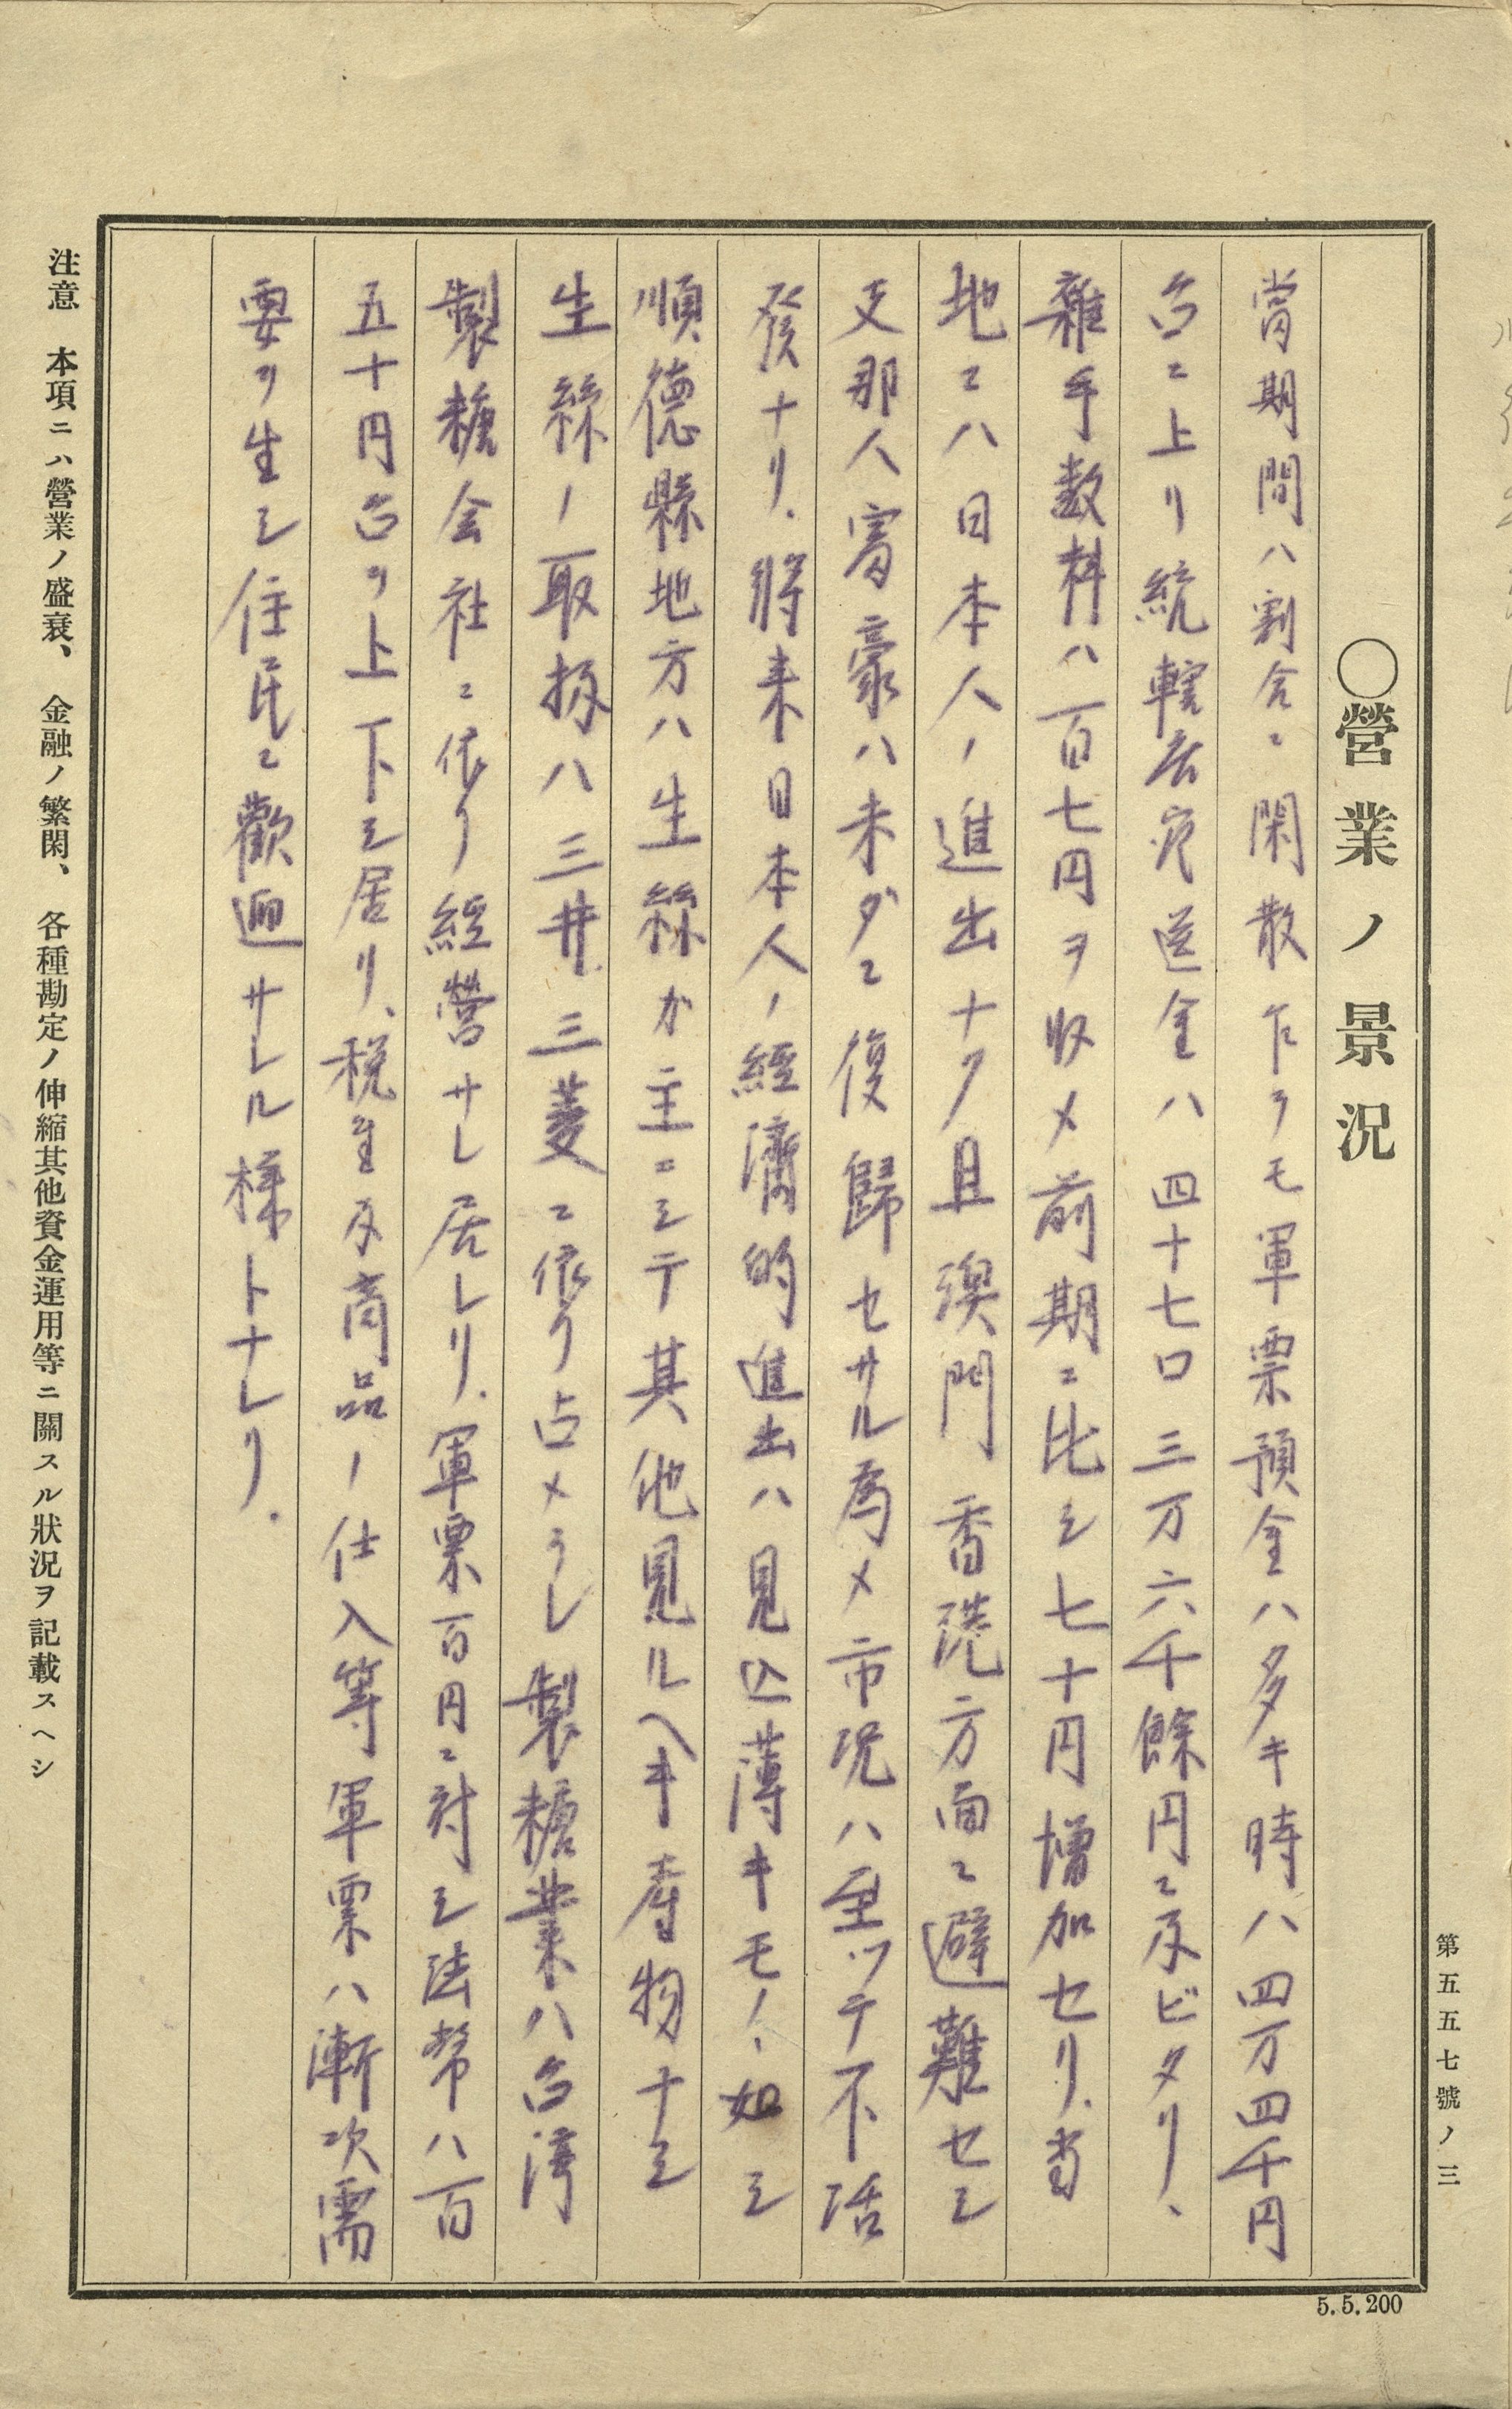 第五五七號ノ三
○營業ノ景況
當期間ハ割合ニ閑散乍ラモ軍票預金ハ多キ時ハ四万四千円
台ニ上リ統轄店宛送金ハ四十七口三万六千餘円ニ及ビタリ、
雜手数料ハ一百七円ヲ収メ前期ニ比シ七十円増加セリ、当
地ニハ日本人ノ進出ナク且澳門香港方面ニ避難セシ
支那人富豪ハ未ダニ復歸セサル為メ市況ハ至ツテ不活
發ナリ、將来日本人ノ經濟的進出ハ見込薄キモノヽ如シ
順德縣地方ハ生絲カ主ニシテ其他見ルヘキ産物ナシ
生絲ノ取扱ハ三井、三菱ニ依リ占メラレ製糖業ハ台湾
製糖会社ニ依リ經營サレ居レリ、軍票百円ニ対シ法幣ハ百
五十円台ヲ上下シ居リ、税金及商品ノ仕入等軍票ハ漸次需
要ヲ生シ住民ニ歡迎サレル様トナレリ、
注意 本項ニハ營業ノ盛衰、金融ノ繁閑、各種勘定ノ伸縮其他資金運用等ニ關スル狀況ヲ記載スヘシ
5.5.200